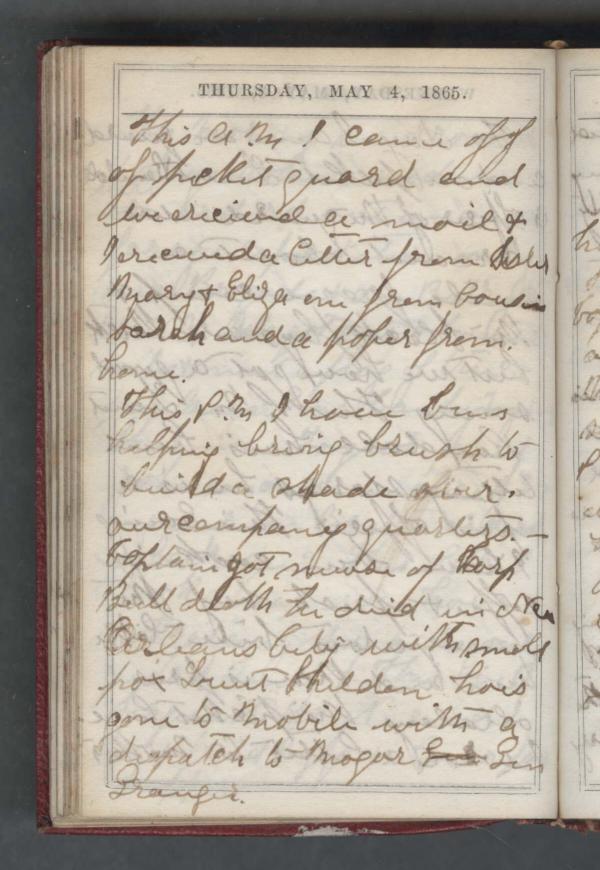 THURSDAY, MAY 4, 1865.
This A M I came off
of picket guard and
we reciend a mail &
I reciend a letter from Sister
Mary & Eliza one from Cousin
Sarah and a paper from
home.
This P.M I have been
helping bring brush to
build a shade over
our company quarters. -
Captain got nuse of Corp
Bell death he died in New
Orleans City with small
pox Lieut Shelden hais
gone to Mobile with a
dispatch to Mager Gen
Granger.